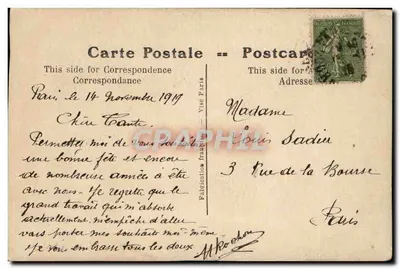 Carte Postale -- Postcard
This side for Correspondence
Correspondance
This side for
Adresse
Paris le 14 Novembre 1919
Chère Tante,
Permettez moi de vous souhaiter
une bonne fête et encore
de nombreuses années à être
avec nous - Je regrette que le
grand travail qui m'absorbe
actuellement m'empêche d'aller
vous porter mes souhaits moi-même
Je vous embrasse tous les deux
Visé Paris
Fabrication
Madame
Louis Sadier
3 Rue de la Bourse
Paris